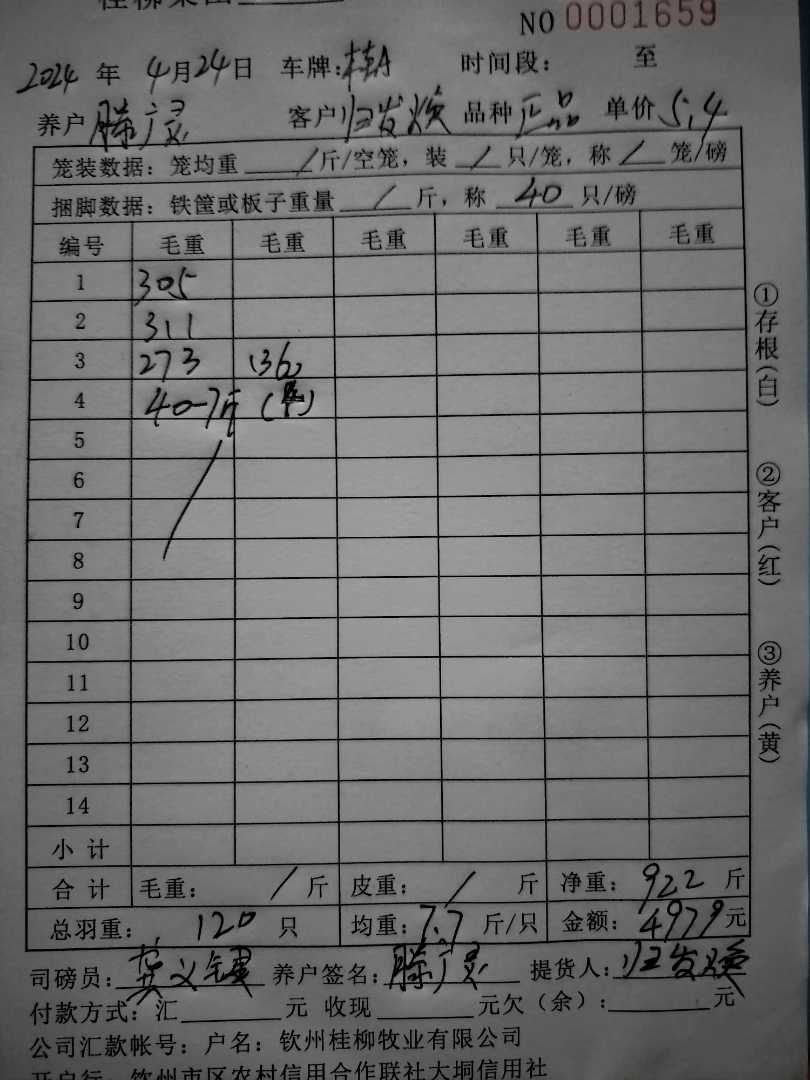 NO 0001659
2024 年 4月24日 车牌:桂A 时间段: 至
养户 滕广灵 客户 归发焕 品种 正品 单价 5.4
笼装数据: 笼均重 / 斤/空笼, 装 / 只/笼, 称 / 笼/磅
捆脚数据: 铁筐或板子重量 / 斤, 称 40 只/磅
编号 毛重 毛重 毛重 毛重 毛重 毛重
1 305
2 311
3 273 (36)
4 40-7斤
5
6
7
8
9
10
11
12
13
14
小计
合计 毛重: / 斤 皮重: / 斤 净重: 922 斤
总羽重: 120 只 均重: 7.7 斤/只 金额: 4979元
司磅员: 养户签名: 滕广灵 提货人: 归发焕
付款方式: 汇 元 收现 元欠(余): 元
公司汇款帐号: 户名: 钦州桂柳牧业有限公司
开户行: 钦州市区农村信用合作联社大垌信用社
①存根(白) ②客户(红) ③养户(黄)